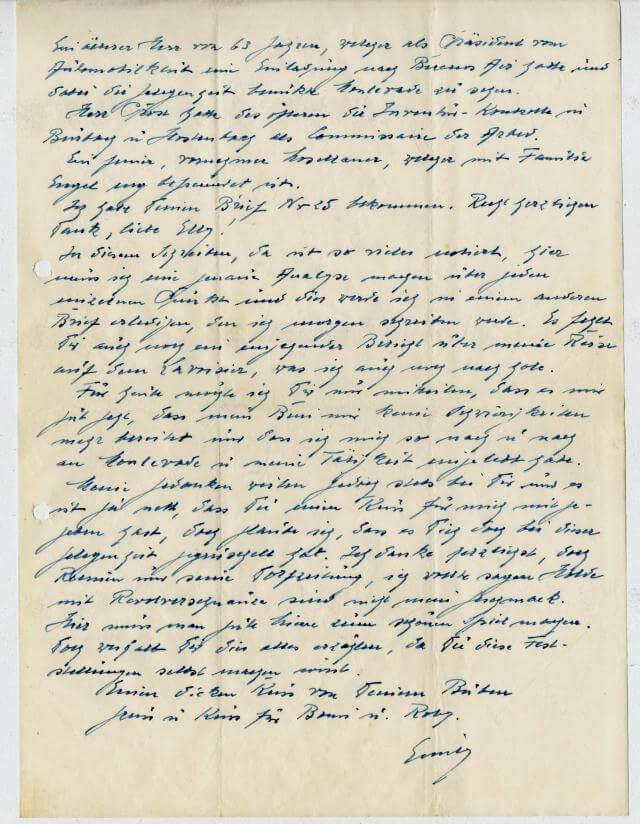 Ein älterer Herr von 63 Jahren, welcher als Präsident vom
eine Einladung nach Buenos hatte und
dabei die Gelegenheit benützte Monlevade zu sehen.
Herr hatte des öfteren die Inventur-Kontrolle in
Burbach u Hostenbach als Commissaire der Arbed.
Ein feiner, vornehmer Mosellaner, welcher mit Familie
Engel eng befreundet ist.
Ich habe Deinen Brief Nr 25 bekommen. Recht herzlichen
Dank, liebe Elly.
In diesem Schreiben, da ist so vieles notiert, hier
muss ich eine genaue Analyse machen über jeden
einzelnen Punkt und dies werde ich in einem anderen
Brief erledigen, den ich morgen schreiben werde. Es fehlt
Dir auch noch ein eingehender Bericht über meine Reise
auf dem Lavoisier, was ich auch noch nach hole.
Für heute möchte ich Dir nur mitteilen, dass es mir
gut geht, dass mein keine Schwierigkeiten
mehr bereitet und dass ich mich so nach u nach
an Monlevade u meine Tätigkeit eingelebt habe.
Meine Gedanken weilen jedoch stets bei Dir und es
ist ja nett, dass Du einen Kuss für mich mitge-
geben hast, doch glaube ich, dass es Dich doch bei dieser
Gelegenheit gegruselt hat. Ich danke herzlichst, doch
und seine ich wollte sagen
mit Revolverschnauze sind nicht mein Geschmack.
Hier muss man gute Miene zum schönen Spiel machen.
Doch verhalt Dir dies alles erzählen, da Du diese Fest-
stellungen selbst machen wirst.
Einen dicken Kuss von Deinem
Gruss u Kuss für u.